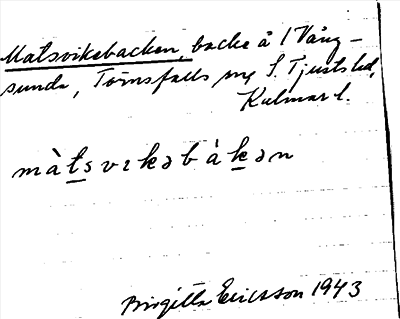 Matsvikebacken, backe å 1 Vång-
sunda, Törnsfalls sn, S. Tjusts hd,
Kalmar l.
màtsvɩkəbàkən
Birgitta Ericsson 1943